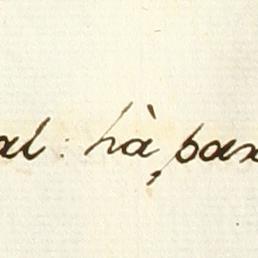 al : hà pax